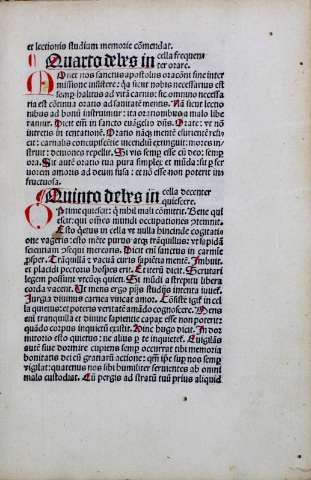 et lectionis studiam memorie cōmendat.
Quarto debes in cella frequen
ter orare.
Monet nos sanctus apostolus oracōni sine inter
missione insistere: q̄a sicut nobis necessarius est
semp halitus ad vitā carnis: sic omnino necessa
ria est cōtinua oratio ad sanitatē mentis. Nā sicut lectio
nibus ad bonū instruimur: ita orationibus a malo libe
ramur. Dicit em̄ in sancto euangelio dn̄s. Orate: vt nō
intretis in tentationē. Oratio nāq̄ mentē esurientē refi
cit: carnalis concupiscētie incendiū extinguit: mores in
struit: demones repellit. Si vis semp esse cū deo: semp
ora. Sit autē oratio tua pura simplex et mūda: sit p̄ ser
uorem amoris ad deum fusa: et nō esse non poterit in
fructuosa.
Quinto debes in cella decenter
quiescere.
Optime quiescit: q̄ nihil mali cōmittit. Bene qui
escit: qui officij mundi occupationes p̄termit.
Esto q̄etus in cella vt nulla hincinde cogitatio
one vageris: esto mēte purus atq̄ trāquillus: vt sapidā
scientiam p̄sequi merearis. Dicit em̄ sanctus in carmīe
p̄sper. Trāquillā z vacuā curis sapiētia mentē. Imbuit.
et placidi pectoris hospes erit. Et iterū dicit. Scrutari
legem possunt vtcūq̄ quieti. Si mūdi a strepitu libera
corda vacent. Ut mens ergo pijs studijs intenta iuuet.
Jurgia diuinus carnea vincat amor. Cōsiste igit in cel
la quietus: et poteris veritatē amādo cognoscere. Mens
em̄ tranquilla et diuine sapientie capax esse non poterit:
quādo corpus inquietū existit. Hinc hugo dicit. In dor
mitorio esto quietus: ne alius p̄ te inquietet. Euigilās
autē siue dormire cupiens semp occurrat tibi memoria
bonitatis dei cū gratiarū actione: qm̄ ip̄e sup nos semp
vigilat: quatenus nos sibi humiliter seruientes ab omni
malo custodiat. Cū pergis ad stratū tuū prius aliquid